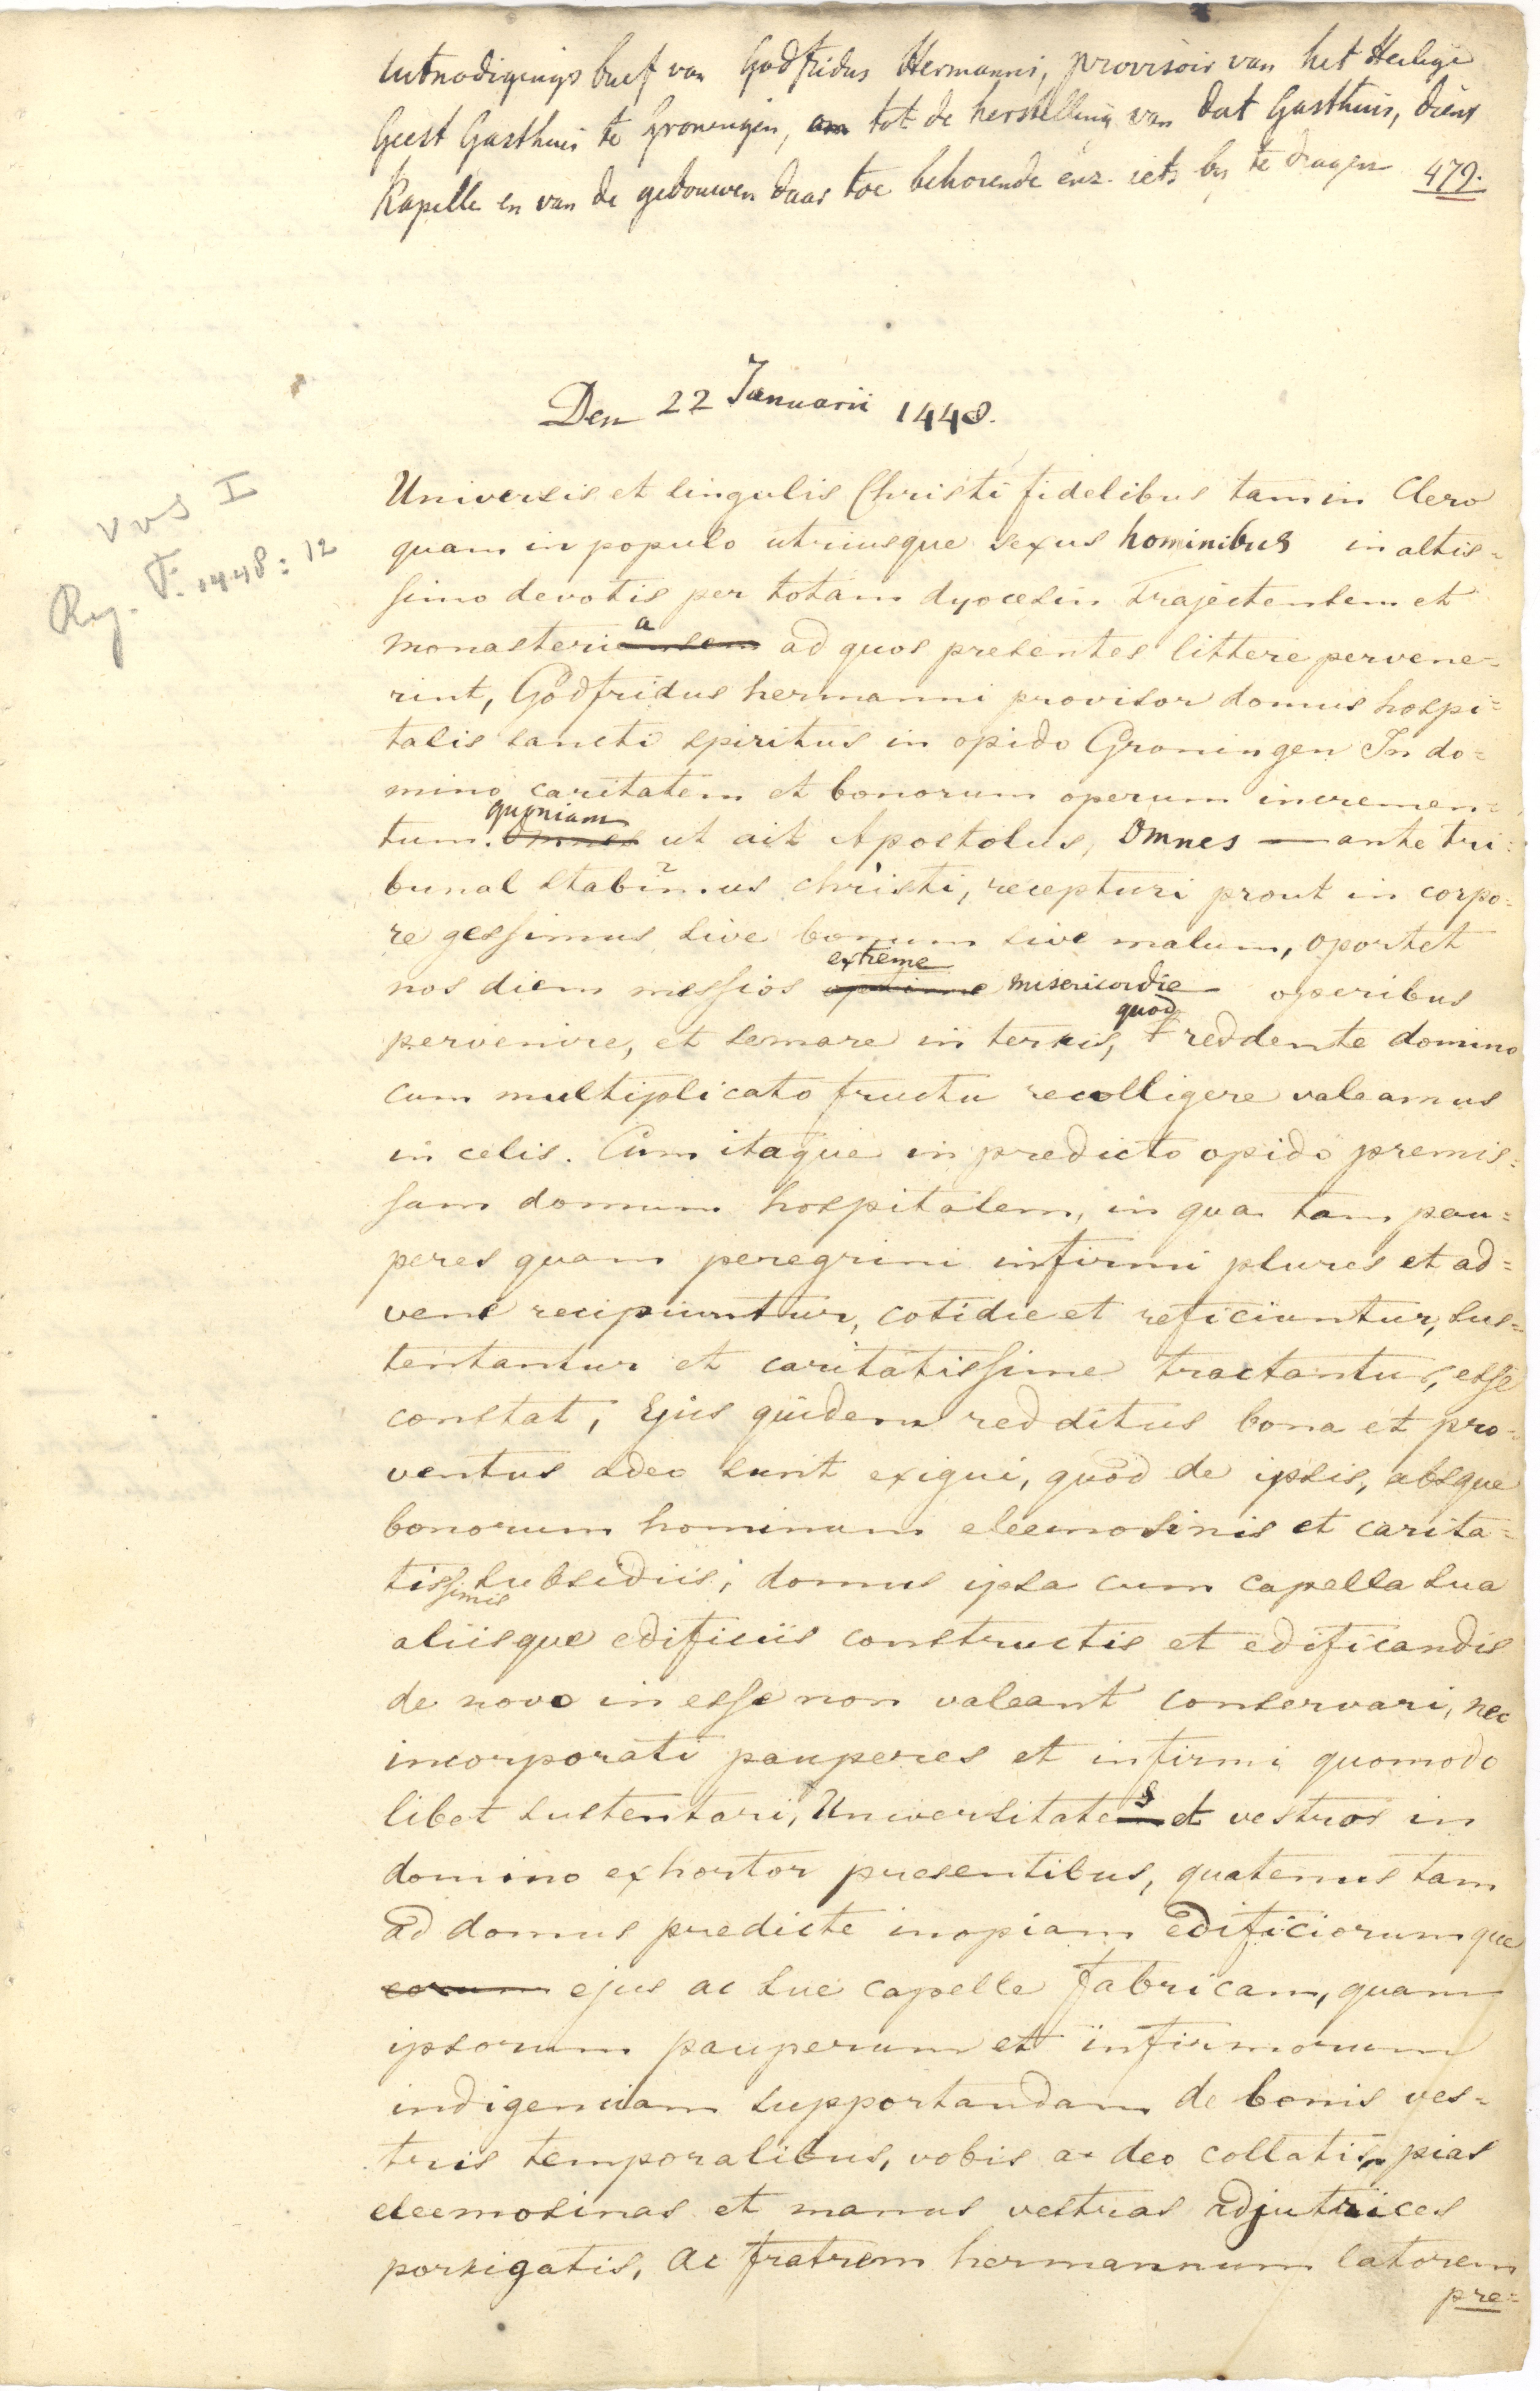 Uitnodigings brief van Godfridus Hermanni, provisoir van het Heilige
Geest Gasthuis te Groningen, om tot de herstelling van dat Gasthuis, diens
Kapelle en van de gebouwen daar toe behorende enz. iets by te dragen 479.
Den 22 Januarii 1448.
vvs I
Reg. F. 1448: 12
Universis et singulis Christi fidelibus tam in Clero
quam in populo utriusque sexus hominibus in altis=
simo devotis per totam dyocesin trajectensem et
monasteria ad quos presentes littere pervene=
rint, Godfridus hermanni provisor domus hospi=
talis sancti spiritus in opido Groningen In do=
mino caritatem et bonorum operum incremen=
tum. quoniam ut ait Apostolus, Omnes — ante tri=
bunal stabimus christi, recepturi prout in corpo=
re gessimus sive bonum sive malum, oportet
nos diem messios extreme misericordie operibus
pervenire, et semare in terris, quod reddente domino
cum multiplicato fructu recolligere valeamus
in celis. Cum itaque in predicto opido premis=
sam domum hospitalem, in qua tam pau=
peres quam peregrini infirmi plures et ad=
vene recipiuntur, cotidie et reficiuntur, sus=
tentantur et caritatissime tractantur, esse
constat, Ejus quidem redditus bona et pro=
ventus adeo sunt exigui, quod de ipsis, absque
bonorum hominum eleemosinis et carita=
tissimis subsidiis, domus ipsa cum capella sua
aliisque edificiis constructis et edificandis
de novo in esse non valeant conservari, nec
incorporati pauperes et infirmi quomodo
libet sustentari, Universitates et vestros in
domino exhortor presentibus, quatenus tam
ad domus predicte inopiam edificiorumque
eorum ejus ac sue capelle fabricam, quam
ipsorum pauperum et infirmorum
indigenciam supportandam de bonis ves=
tris temporalibus, vobis a deo collatis, pias
eleemosinas et manus vestras adjutrices
porrigatis, ac fratrem hermannum latorem
pre=